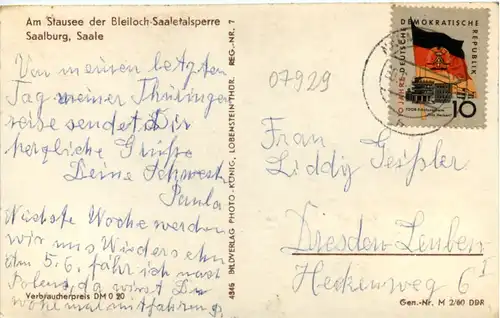 Am Stausee der Bleiloch-Saaletalsperre
Saalburg, Saale
Von meinen letzten
Tag meiner Thüringer
reise sendet Dir
herzliche Grüße
Deine Schwest.
Paula
Nächste Woche werden
wir uns Wiedersehn
Am 5.6. fahr ich nach
Polens, da wirst Du
wohl mal mitfahren
Verbraucherpreis DM 0.20
4846 BILDVERLAG PHOTO-KÖNIG, LOBENSTEIN/THÜR. REG.-NR. 7
10 JAHRE DEUTSCHE DEMOKRATISCHE REPUBLIK
10
07929
Frau
Liddy Geißler
Dresden-Leuben
Heckenweg 6 I
Gen.-Nr. M 2/60 DDR